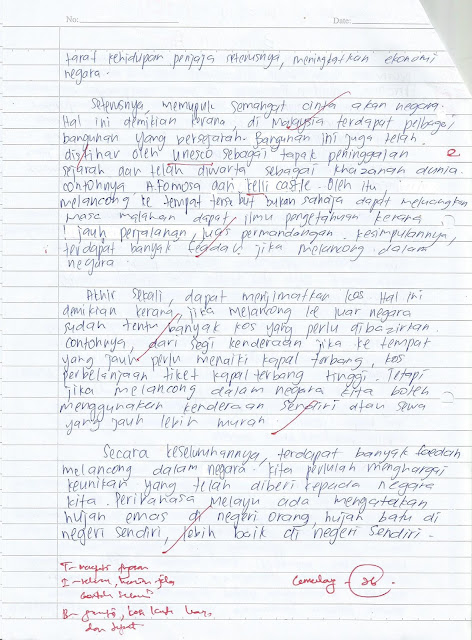 No: Date:
taraf kehidupan penjaja seterusnya, meningkatkan ekonomi
negara.
Seterusnya, memupuk semangat cinta akan negara.
Hal ini demikian kerana di Malaysia terdapat pelbagai
bangunan yang bersejarah. Bangunan ini juga telah
disifihar oleh Unesco sebagai tapak peninggalan
sejarah dan telah diwarta sebagai khazanah dunia.
contohnya A.Fomosa dan kelli castle. Oleh itu,
melancong ke tempat tersebut bukan sahaja dapat meluangkan
masa malahan dapat ilmu pengetahuan kerana
jauh perjalanan, luas permandangan. kesimpulannya,
terdapat banyak faedah jika melancong dalam
negara.
Akhir sekali, dapat menjimatkan kos. Hal ini
demikian kerana, jika melancong ke luar negara
sudah tentu banyak kos yang perlu dibazirkan.
contohnya, dari segi kenderaan jika ke tempat
yang jauh perlu menaiki kapal terbang, kos
perbelanjaan tiket kapal terbang tinggi. Tetapi
jika melancong dalam negara kita boleh
menggunakan kenderaan sendiri atau sewa
yang jauh lebih murah
Secara keseluruhannya, terdapat banyak faedah
melancong dalam negara. kita perlulah menghargai
keunikan yang telah diberi kepada negara
kita. Peribahasa Melayu ada mengatakan
hujan emas di negeri orang, hujan batu di
negeri sendiri, lebih baik di negeri sendiri.
Cemerlang 26